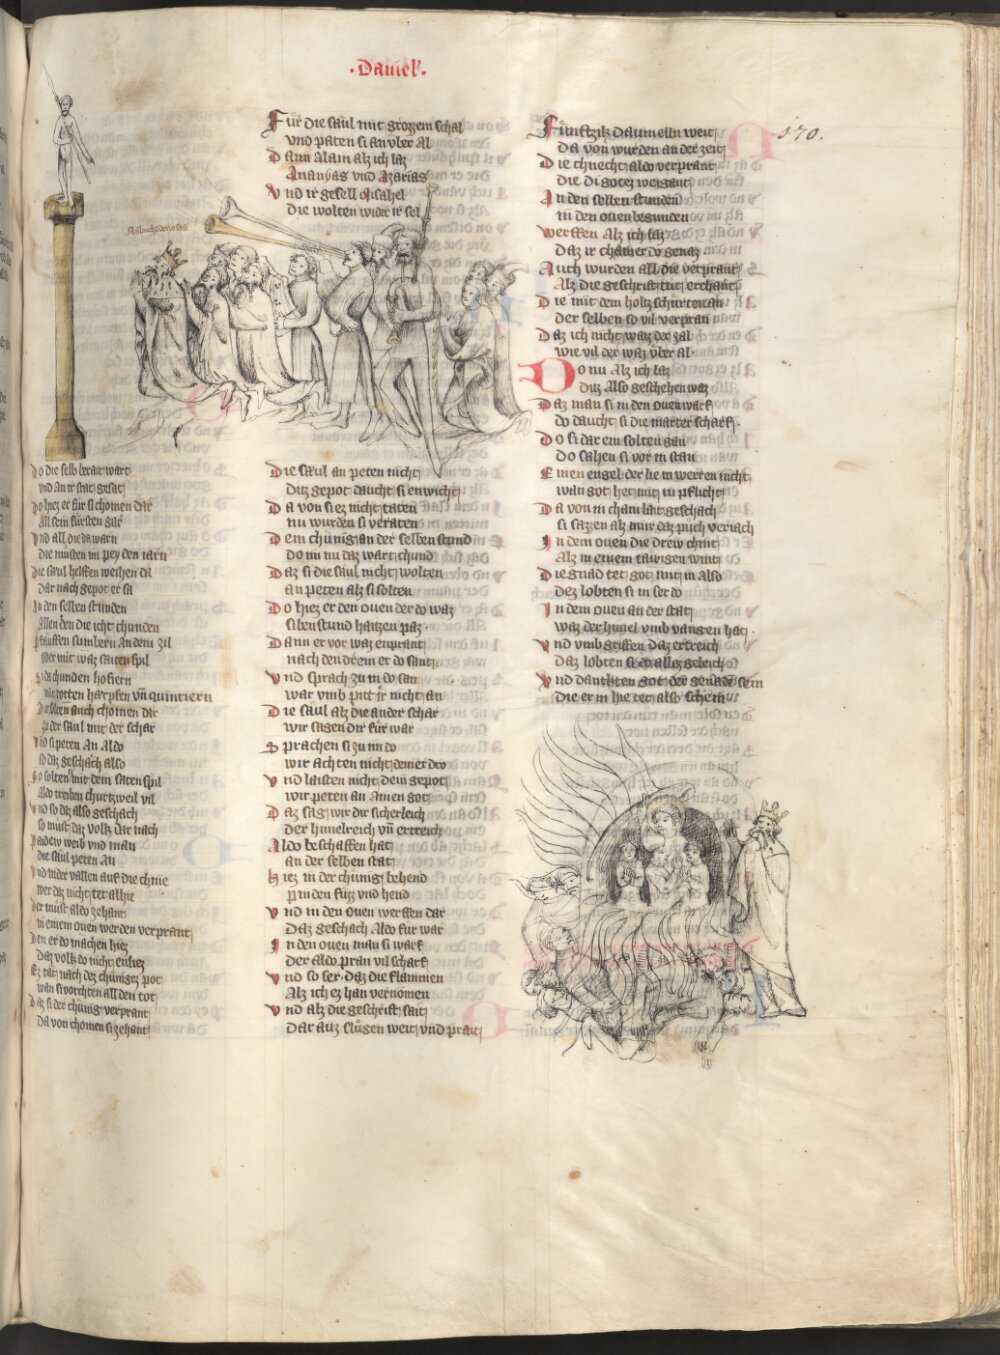 ·Daniel·
170.
Nabuchodonosor
Do die selb berait wart
vnd An ir stat gesatzt
Do hiez er fur sich chomen dar
All sein fursten gar
Vnd all die da warn
Die musten im pey den iarn
Die saul helffen weihen da
Dar nach gepot er sa
In den selben stunden
Allen den die icht chunden
pusaunen sumbern An dem zil
oder mit waz saiten spil
Si da chunden hofiern
mit rotten harpfen vnd quintiern
Die solten auch chomen dar
zu der saul mit der schar
Vnd si peten An Aldo
so daz geschach also
So solten mit dem saiten spil
Aldo treiben churtzweil vil
Vnd so daz also geschach
so must daz volk dar nach
paideu weib vnd man
die saul peten An
Vnd nider vallen auf die chnie
wer daz nicht tet alhie
Der must aldo zehant
in einem ouen werden verprant
Den er do machen hiez
Daz volk do nicht enliez
Ez tat nach dez chuniges pot
wan si vorchten all den tot
Daz si der chunig verprant
Da von chomen si zehant
Fur die saul mit grozzem schal
vnd paten si an vber Al
Dann Alain alz ich laz
Ananyas vnd Azarias
Vnd ir gesell Misahel
die wolten wider ir sel
Die saul an peten nicht
Ditz gepot daucht si enwicht
Da von si ez nicht taten
nu wurden si veraten
Dem chunig an der selben stund
do im nu daz wart chund
Daz si die saul nicht wolten
an peten alz si solten
Do hiez er den ouen der do waz
siben stund haitzen paz
Dann er vor waz enprant
nach den drein er do sant
Vnd sprach zu in do san
war vmb pitt ir nicht an
Die saul alz die ander schar
wir sagen dir fur war
Sprachen si zu im do
wir achten nicht deiner dro
Vnd laisten nicht dein gepot
wir peten an Ainen got
Daz sag wir dir sicherleich
der himelreich vnd ertreich
Aldo beschaffen hat
an der selben stat
Hiez in der chunig behend
pinden fuzz vnd hend
Vnd in den ouen werffen dar
Daz geschach Aldo fur war
In den ouen man si warf
der aldo pran vil scharf
Vnd so ser daz die flammen
Alz ich ez han vernomen
Vnd alz die geschrift sait
dar auz slugen weit vnd prait
Funftzik daumelln weit
Da von wurden an der zeit
Die chnecht aldo verprant
die di gotez weigant
In den selben stunden
in den ouen begunden
Werffen Alz ich laz
Daz ir chainer do genaz
Auch wurden all die verprant
Alz die geschrift tut erchant
Die mit dem holtz schurten an
der selben so vil verpran
Daz ich nicht waiz der zal
wie vil der waz vber al
Do nu Alz ich laz
Ditz Also geschehen waz
Daz man si in den ouen warf
do daucht si die marter scharf
Do si dar ein solten gan
Do sahen si vor in stan
Einen engel der lie in werren nicht
wan got het mit in pflicht
Da von in cham lait geschach
si sazen alz mir daz puch veriach
In dem ouen die drew chint
Alz in einem tawigen wint
Die gnad tet got mit in also
Dez lobten si in ser do
In dem ouen an der stat
waz der himel vmb vangen hat
Vnd vmb griffen daz ertreich
Daz lobten si do allez geleich
Vnd danckten got der genaden sein
die er in hie tet also schein